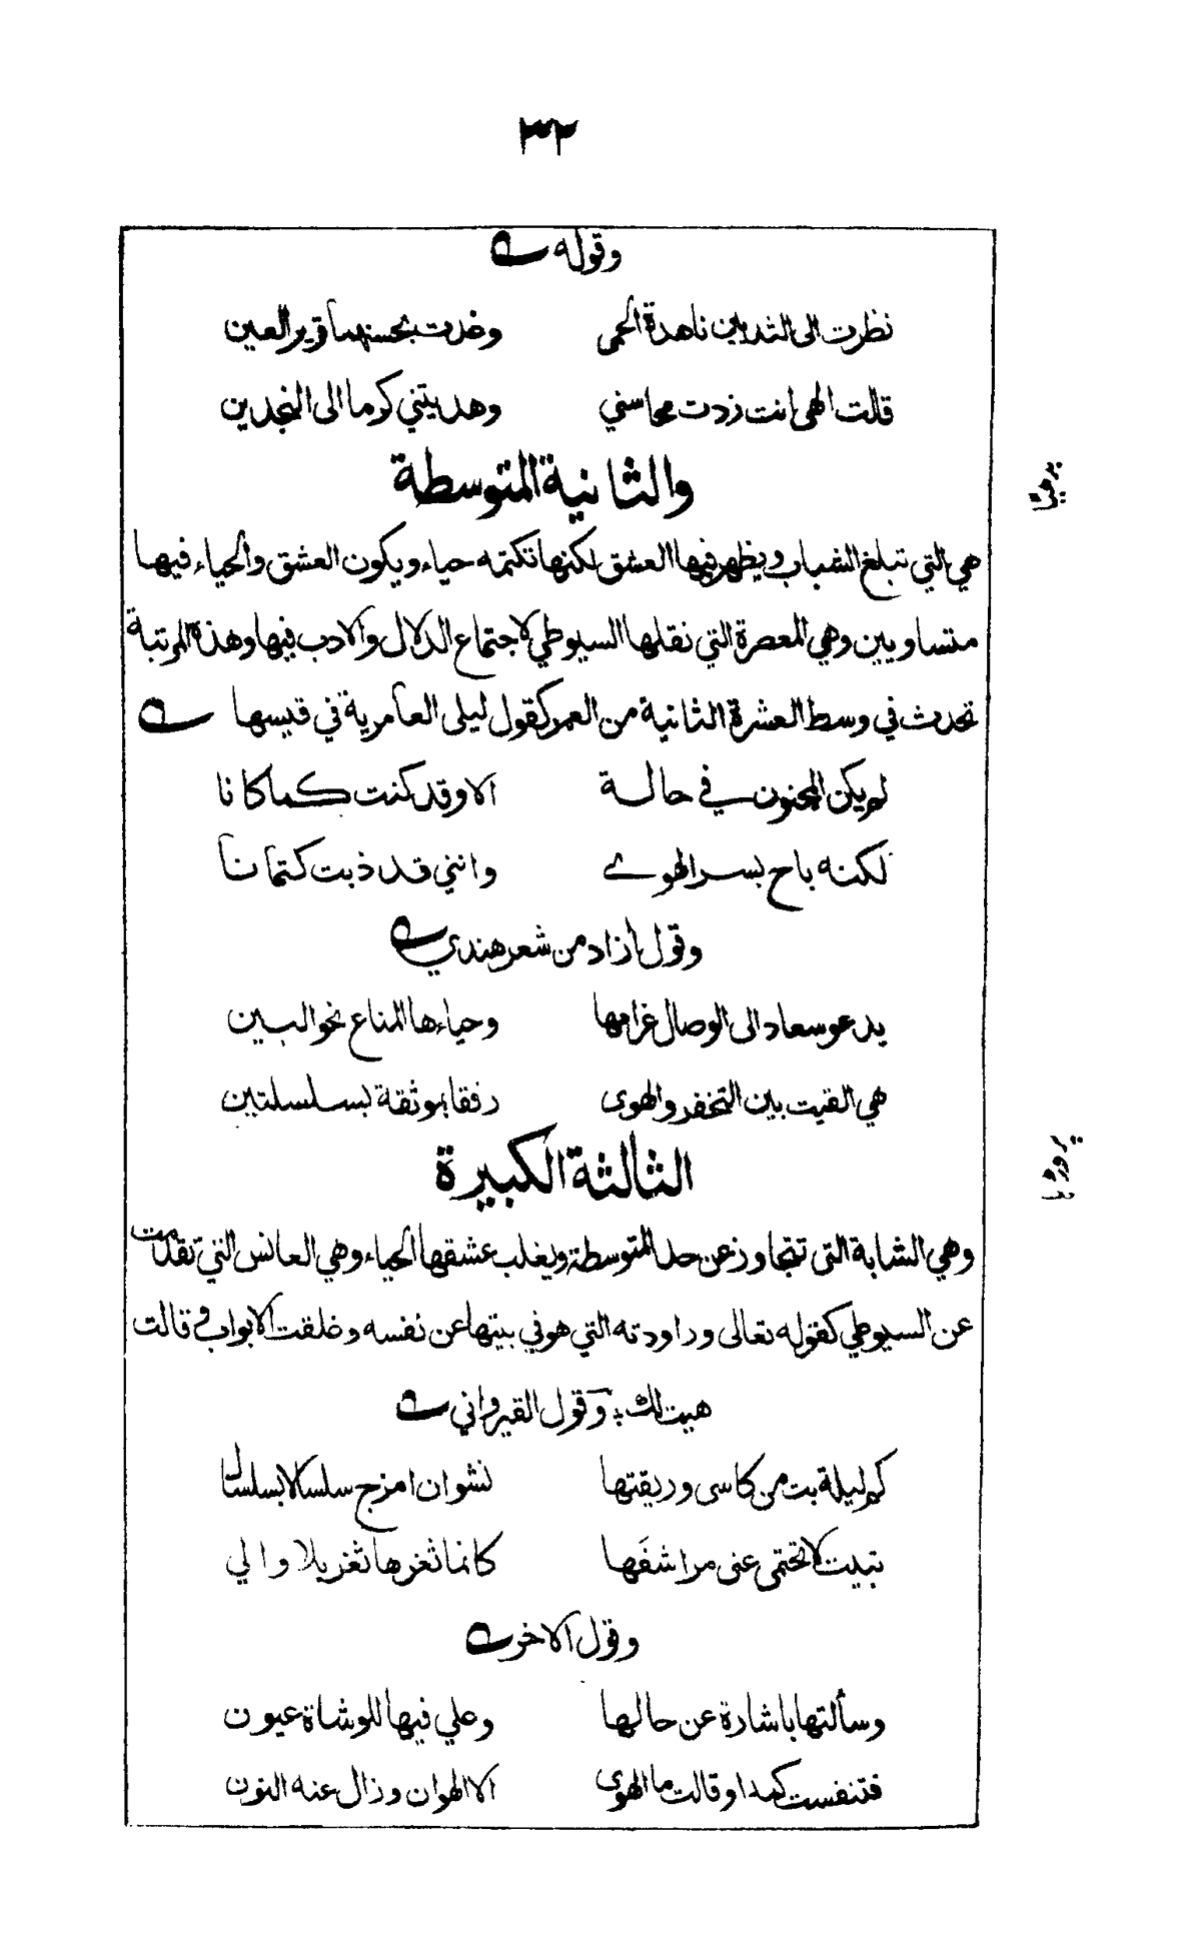 ٣٢
وقوله
نظرت الى الثديين ناهدة الحمى وغدت بحسنهما قرير العين
قالت الهي انت زدت محاسني وهديتني كرما الى النجدين
والثانية المتوسطة
هي التي تبلغ الشباب ويظهر فيها العشق لكنها تكتمه حياء ويكون العشق والحياء فيها
متساويين وهي المعصرة التي نقلها السيوطي لاجتماع الدلال والادب فيها وهذه المرتبة
تحدث في وسط العشرة الثانية من العمر كقول ليلى العامرية في قيسها
لم يكن المجنون في حالة الا وقد كنت كما كانا
لكنه باح بسر الهوے وانني قد ذبت كتمانا
وقول ازاد من شعر هندي
يدعو سعاد الى الوصال غرامها وحياءها المناع نحو البين
هي القيت بين التخفر والهوى رفقا بموثقة بسلسلتين
الثالثة الكبيرة
وهي الشابة التي تتجاوز عن حد المتوسطة ويغلب عشقها الحياء وهي العانس التي تقدمت
عن السيوطي كقوله تعالى وراودته التي هو في بيتها عن نفسه وغلقت الابواب وقالت
هيت لك وقول القيرواني
كم ليلة بت من كاسى وريقتها نشوان امزج سلسالا بسلسال
تبيت لا تحتمى عنى مراشفها كانما ثغرها ثغر بلا والي
وقول الاخر
وسألتها باشارة عن حالها وعلي فيها للوشاة عيون
فتنفست كمدا وقالت ما الهوى الا الهوان وزال عنه النون